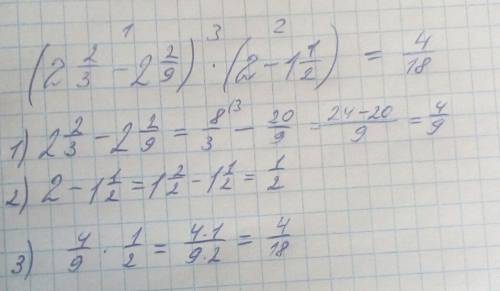 1 3 2
(2 2/3 - 2 2/9) · (2 - 1 1/2) = 4/18
1) 2 2/3 - 2 2/9 = 8/3 ⁽³ - 20/9 = 24-20/9 = 4/9
2) 2 - 1 1/2 = 1 2/2 - 1 1/2 = 1/2
3) 4/9 · 1/2 = 4·1/9·2 = 4/18